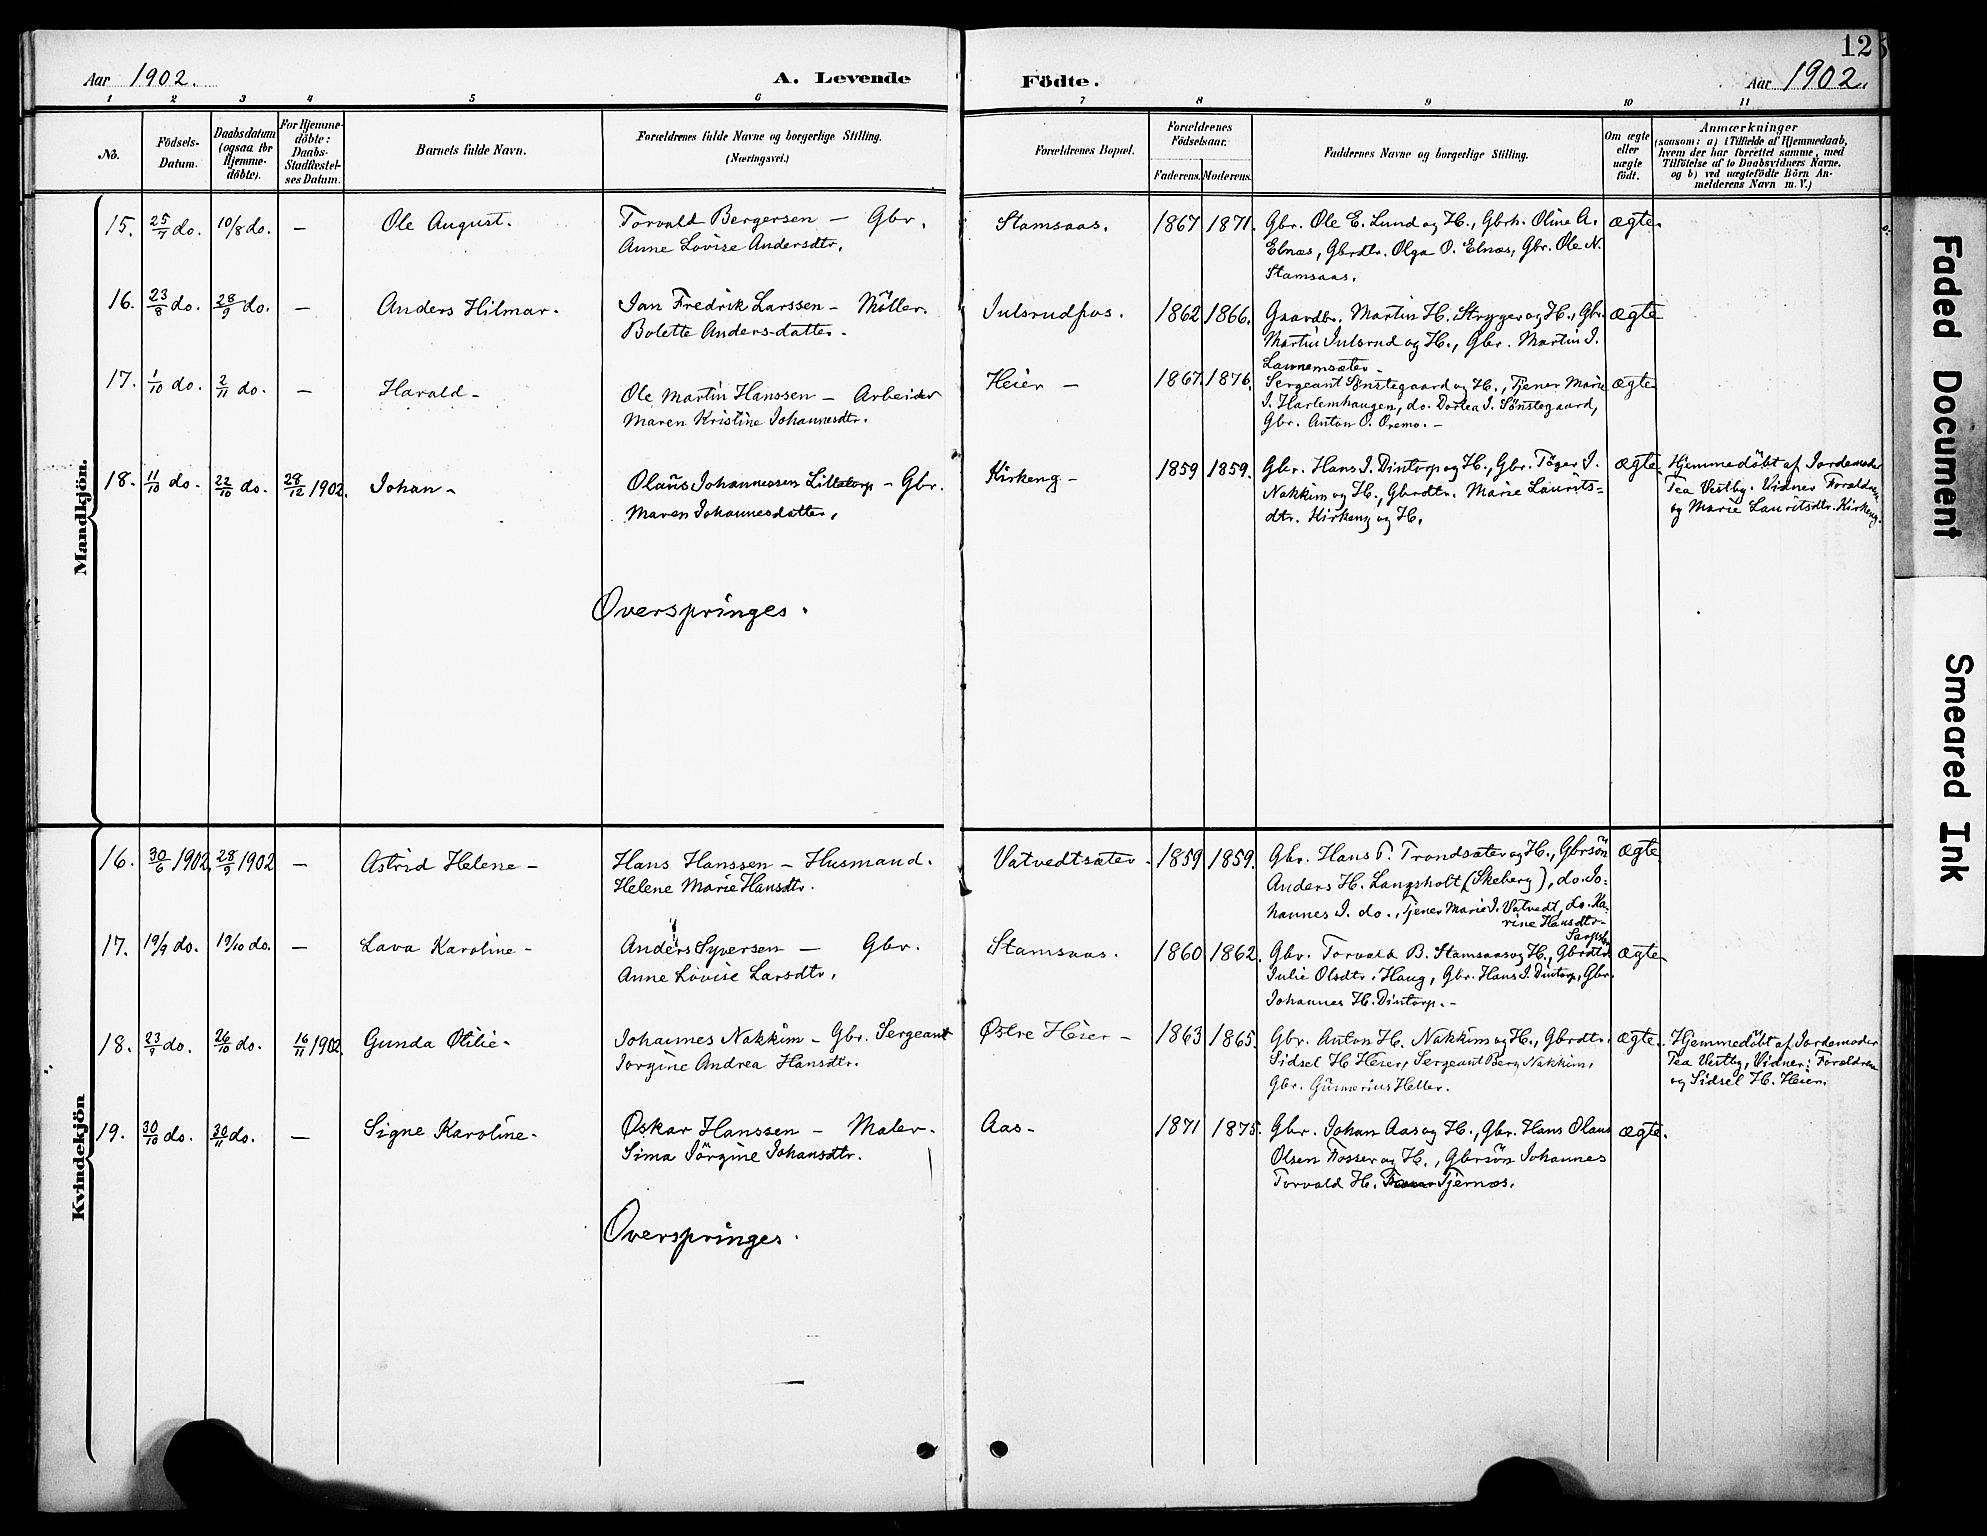 12
Aar 1902.
A. Levende Födte.
Aar 1902.
1 2 3 4 5 6 7 8 9 10 11
No.
Födsels-
Datum.
Daabsdatum
(ogsaa for
Hjemme-
döbte).
For Hjemme-
döbte:
Daabs-
Stadfæstel-
ses Datum.
Barnets fulde Navn.
Forældrenes fulde Navne og borgerlige Stilling.
(Næringsvei.)
Forældrenes Bopæl.
Forældrenes
Födselsaar.
Faderens. Moderens.
Faddernes Navne og borgerlige Stilling.
Om ægte
eller
uægte
født.
Anmærkninger
(saasom: a) i Tilfælde af Hjemmedaab,
hvem der har forrettet samme, med
Tilföielse af to Daabsvidners Navne,
og b) ved uægtefödte Börn An-
melderens Navn m. V.)
Mandkjön.
15. 25/7 do. 10/8 do. — Ole August. Torvald Bergersen — Gbr. Stamsaas. 1867 1871. Gbr. Ole E. Lund og H., Gbrk. Oline A. ægte.
Anne Lovise Andersdtr. Elnæs, Gbrdtr. Olga O. Elnæs, Gbr. Ole N.
Stamsaas.
16. 23/8 do. 28/9 do. — Anders Hilmar. Jan Fredrik Larssen — Møller. Julsrudfos. 1862 1866. Gaardbr. Martin H. Stryger og H., Gbr. ægte
Bolette Anders-datter. Martin Julsrud og H., Gbr. Martin J.
17. 1/10 do. 2/11 do. — Harald — Ole Martin Hanssen — Arbeider Heier — 1867 1876. Sergeant Sønstegaard og H., Tjener Marie ægte
Maren Kristine Johannesdtr. J. Harlemhaugen, do. Dortea J. Sønstegaard,
Gbr. Anton O. Oremo. —
18. 11/10 do. 22/10 do. 28/12 1902. Johan — Olaus Johannessen Lilletorp — Gbr. Kirkeng — 1859 1859. Gbr. Hans J. Dintorp og H., Gbr. Tøger J. ægte. Hjemmedøbt af Jordemoder
Maren Johannesdatter. Nakkim og H., Gbrdtr. Marie Laurits= Tea Vestby. Vidner Forældrene
dtr. Kirkeng og H. og Marie Lauritsdtr. Kirkeng.
Overspringes.
Kvindekjön
16. 30/6 1902 28/9 1902 — Astrid Helene — Hans Hanssen — Husmand. Vatvedtsæter. 1859 1859. Gbr. Hans P. Trondsæter og H., Gbrsön ægte
Helene Marie Hansdtr. Anders H. Langsholt (Skeberg), do. Jo=
hannes J. do., Tjener Marie J. Vatvedt, do. Ka=
rine Hansdtr.
17. 19/9 do. 19/10 do. — Lava Karoline — Anders Syversen — Gbr. Stamsaas. 1860 1862. Gbr. Torvald B. Stamsaas og H., Gbrdtr. ægte.
Anne Lovise Larsdtr. Julie Olsdtr. Haug, Gbr. Hans J. Dintorp, Gbr.
Johannes H. Dintorp. —
18. 23/9 do. 26/10 do. 16/11 1902. Gunda Otilie — Johannes Nakkim — Gbr. Sergeant Østre Heier — 1863 1865. Gbr. Anton H. Nakkim og H., Gbrdtr. ægte. Hjemmedöbt af Jordemoder
Jorgine Andrea Hansdtr. Sidsel H. Heier, Sergeant Berg Nakkim, Tea Vestby, Vidner: Forældrene
Gbr. Gunnerius Heller. og Sidsel H. Heier.
19. 30/10 do. 30/11 do. — Signe Karoline — Oskar Hanssen — Maler. Aas — 1871 1875. Gbr. Johan Aas og H., Gbr. Hans Olaus ægte.
Sima Jörgine Johansdtr. Olsen Fosser og H., Gbrsön Johannes
Torvald H. Tjernæs.
Overspringes.
Faded Document
Smeared Ink